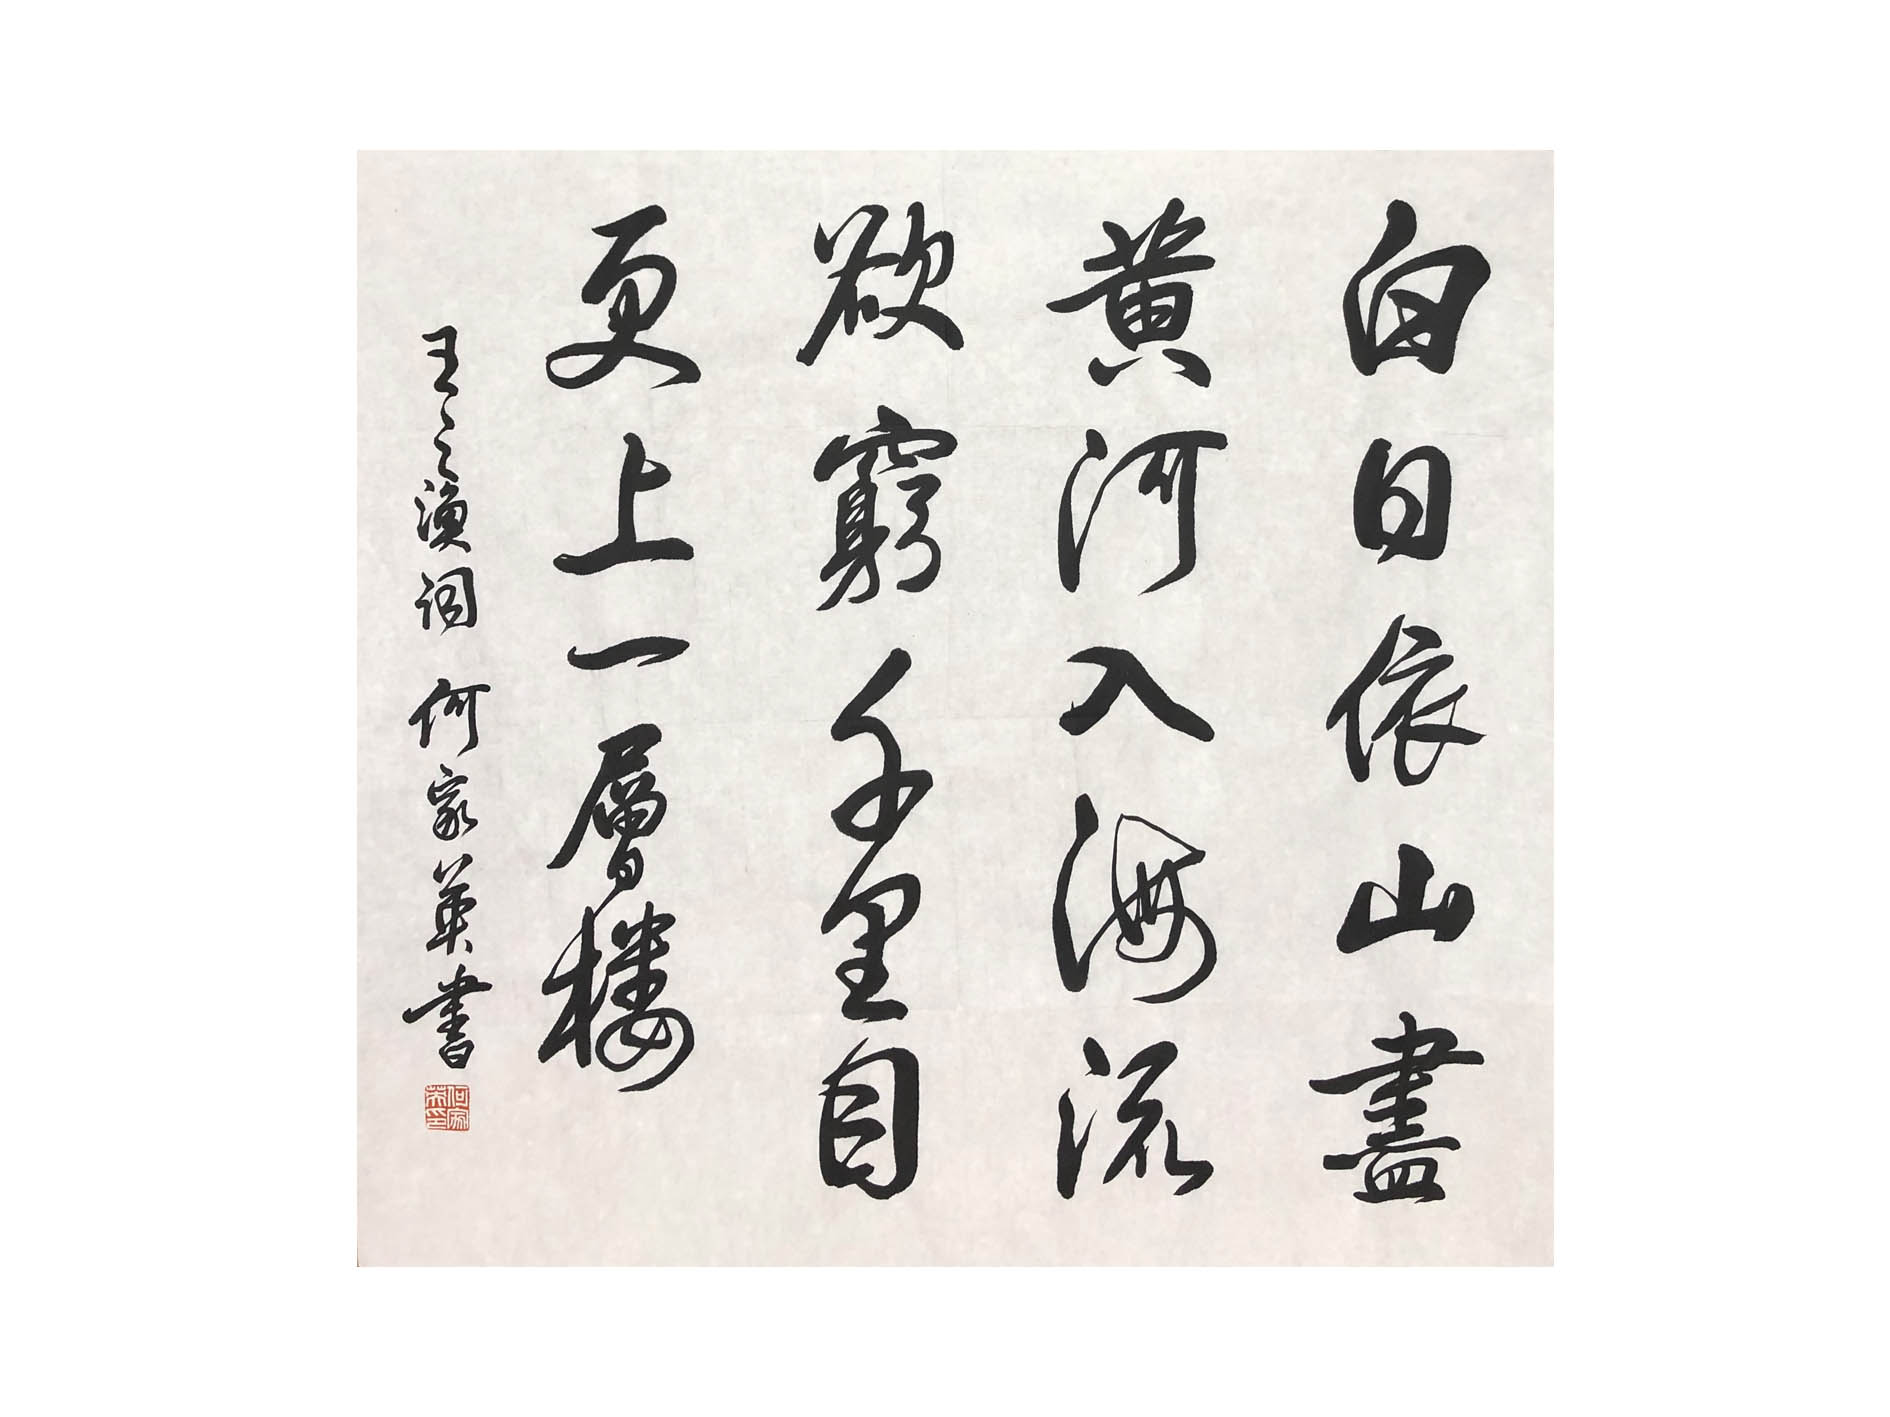 白日依山盡
黄河入海流
欲窮千里目
更上一層樓
王之渙词 何家英書
何家英印